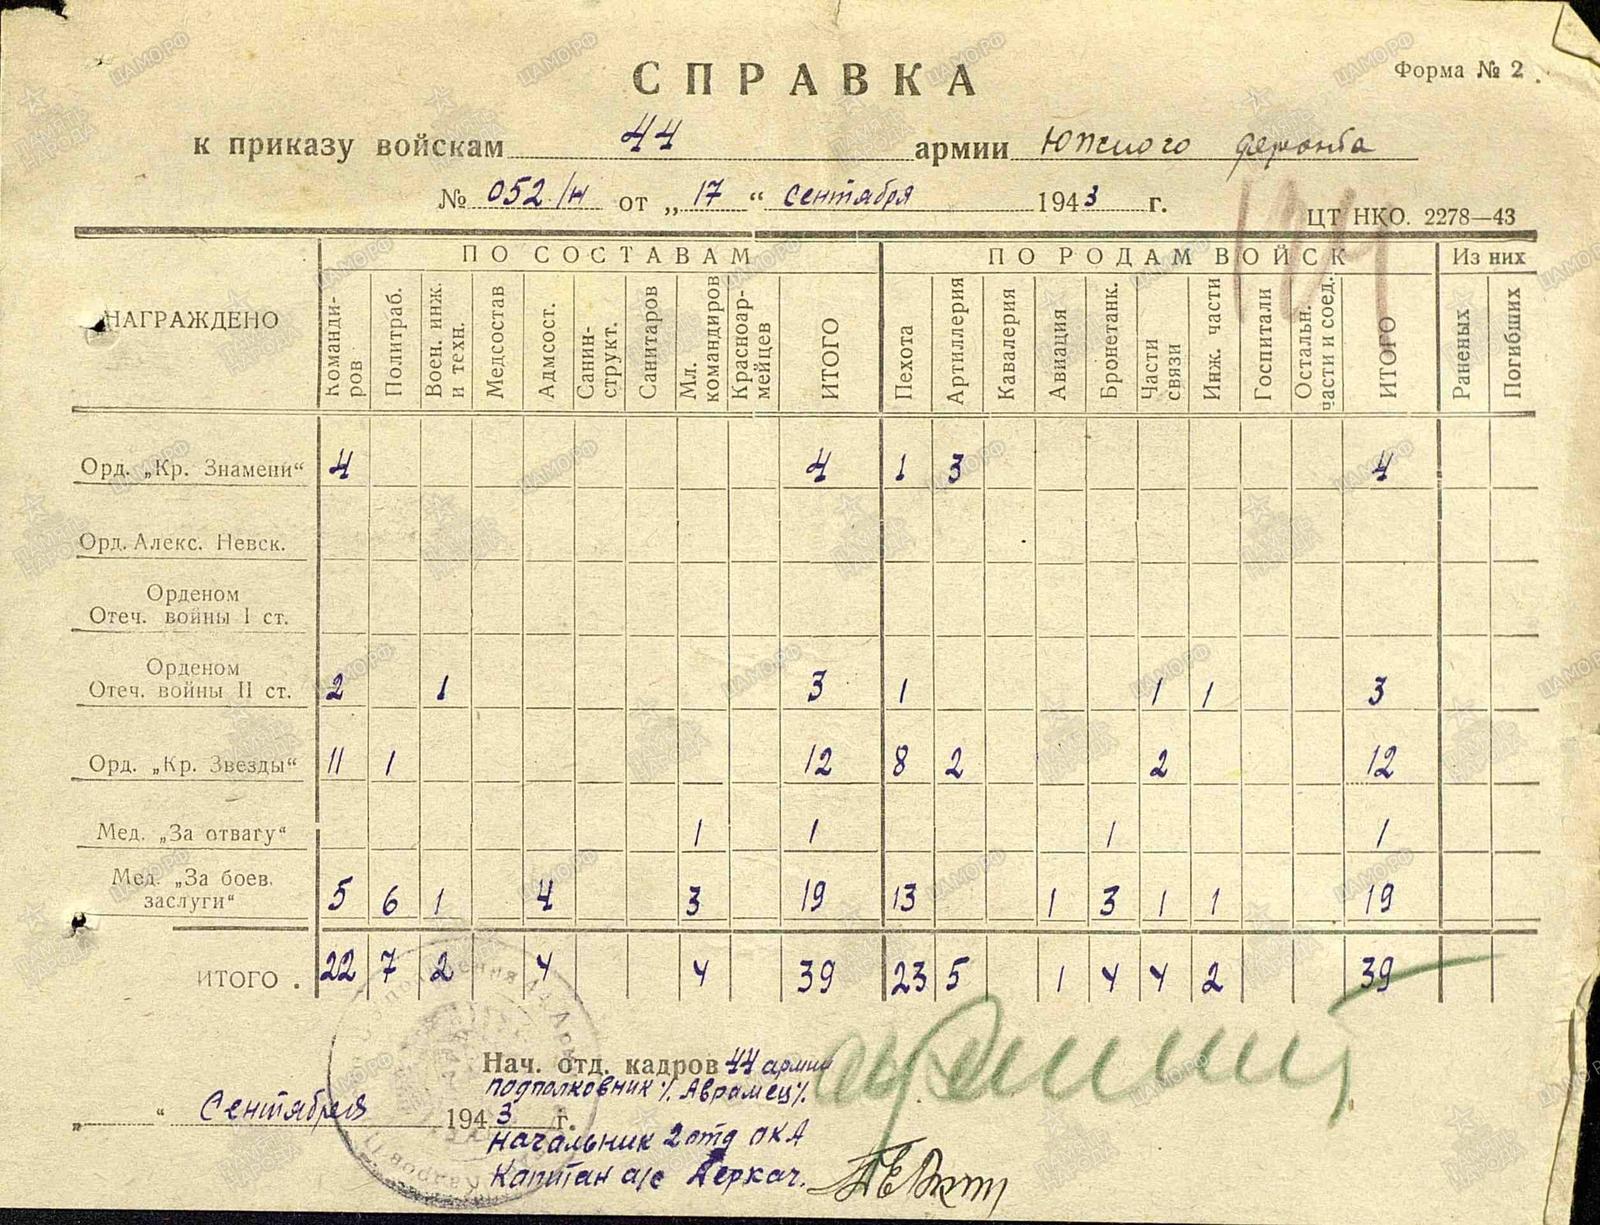 СПРАВКА
Форма № 2
к приказу войскам 44 армии Южного фронта
№ 052/н от „17“ сентября 1943 г.
ЦТ НКО. 2278—43
НАГРАЖДЕНО
ПО СОСТАВАМ
ПО РОДАМ ВОЙСК
Из них
Команди-
ров
Политраб.
Воен. инж.
и техн.
Медсостав
Адмсост.
Санин-
структ.
Санитаров
Мл.
командиров
Красноар-
мейцев
ИТОГО
Пехота
Артиллерия
Кавалерия
Авиация
Бронетанк.
Части
связи
Инж. части
Госпитали
Остальн.
части и соед.
ИТОГО
Раненых
Погибших
Орд. „Кр. Знамени“ 4 4 1 3 4
Орд. Алекс. Невск.
Орденом
Отеч. войны I ст.
Орденом
Отеч. войны II ст. 2 1 3 1 1 1 3
Орд. „Кр. Звезды“ 11 1 12 8 2 2 12
Мед. „За отвагу“ 1 1 1 1
Мед. „За боев.
заслуги“ 5 6 1 4 3 19 13 1 3 1 1 19
ИТОГО. 22 7 2 4 4 39 23 5 1 4 4 2 39
Нач. отд. кадров 44 армии
подполковник /. Аврамец/.
„ “ Сентября 1943 г.
начальник 2 отд ОКА
Капитан а/с Деркач.